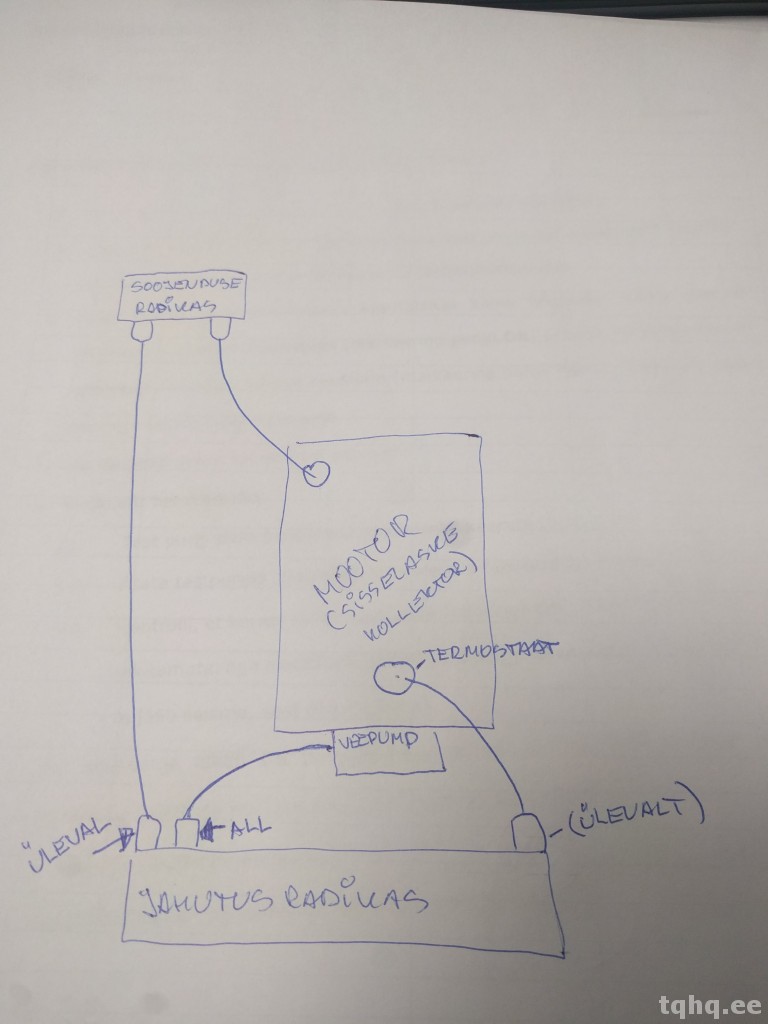 SOOJENDUSE
RADIKAS
MOOTOR
(SISSELASKE
KOLLEKTOR)
TERMOSTAAT
VEEPUMP
ÜLEVAL
ALL
(ÜLEVALT)
JAHUTUS RADIKAS
tqhq.ee